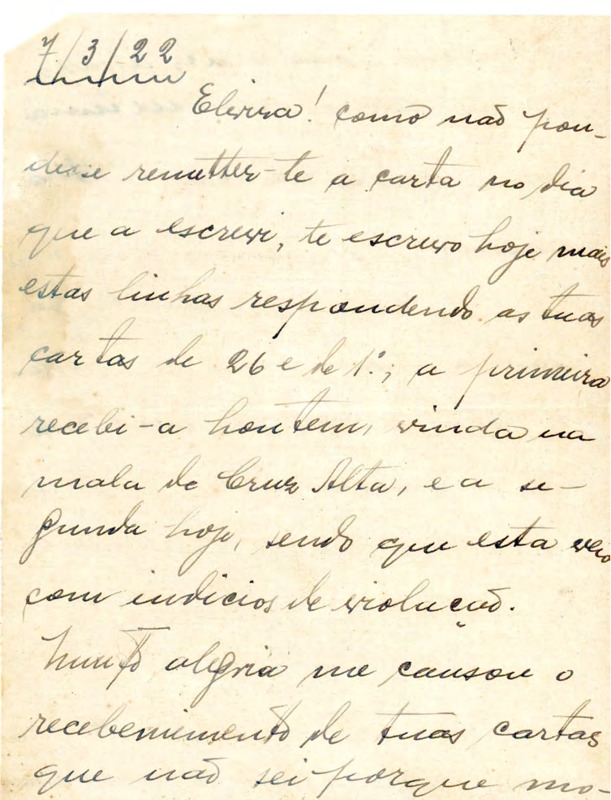 7/3/22
Elvira! como não pou-
desse remetter-te a carta no dia
que a escrevi, te escrevo hoje mais
estas linhas respondendo as tuas
cartas de 26 e de 1º; a primeira
recebi-a hontem, vinda na
mala de Cruz Alta, e a se-
gunda hoje, sendo que esta veio
com indicios de violação.
Muito alegria me causou o
recebemimento de tuas cartas
que não sei porque mo-